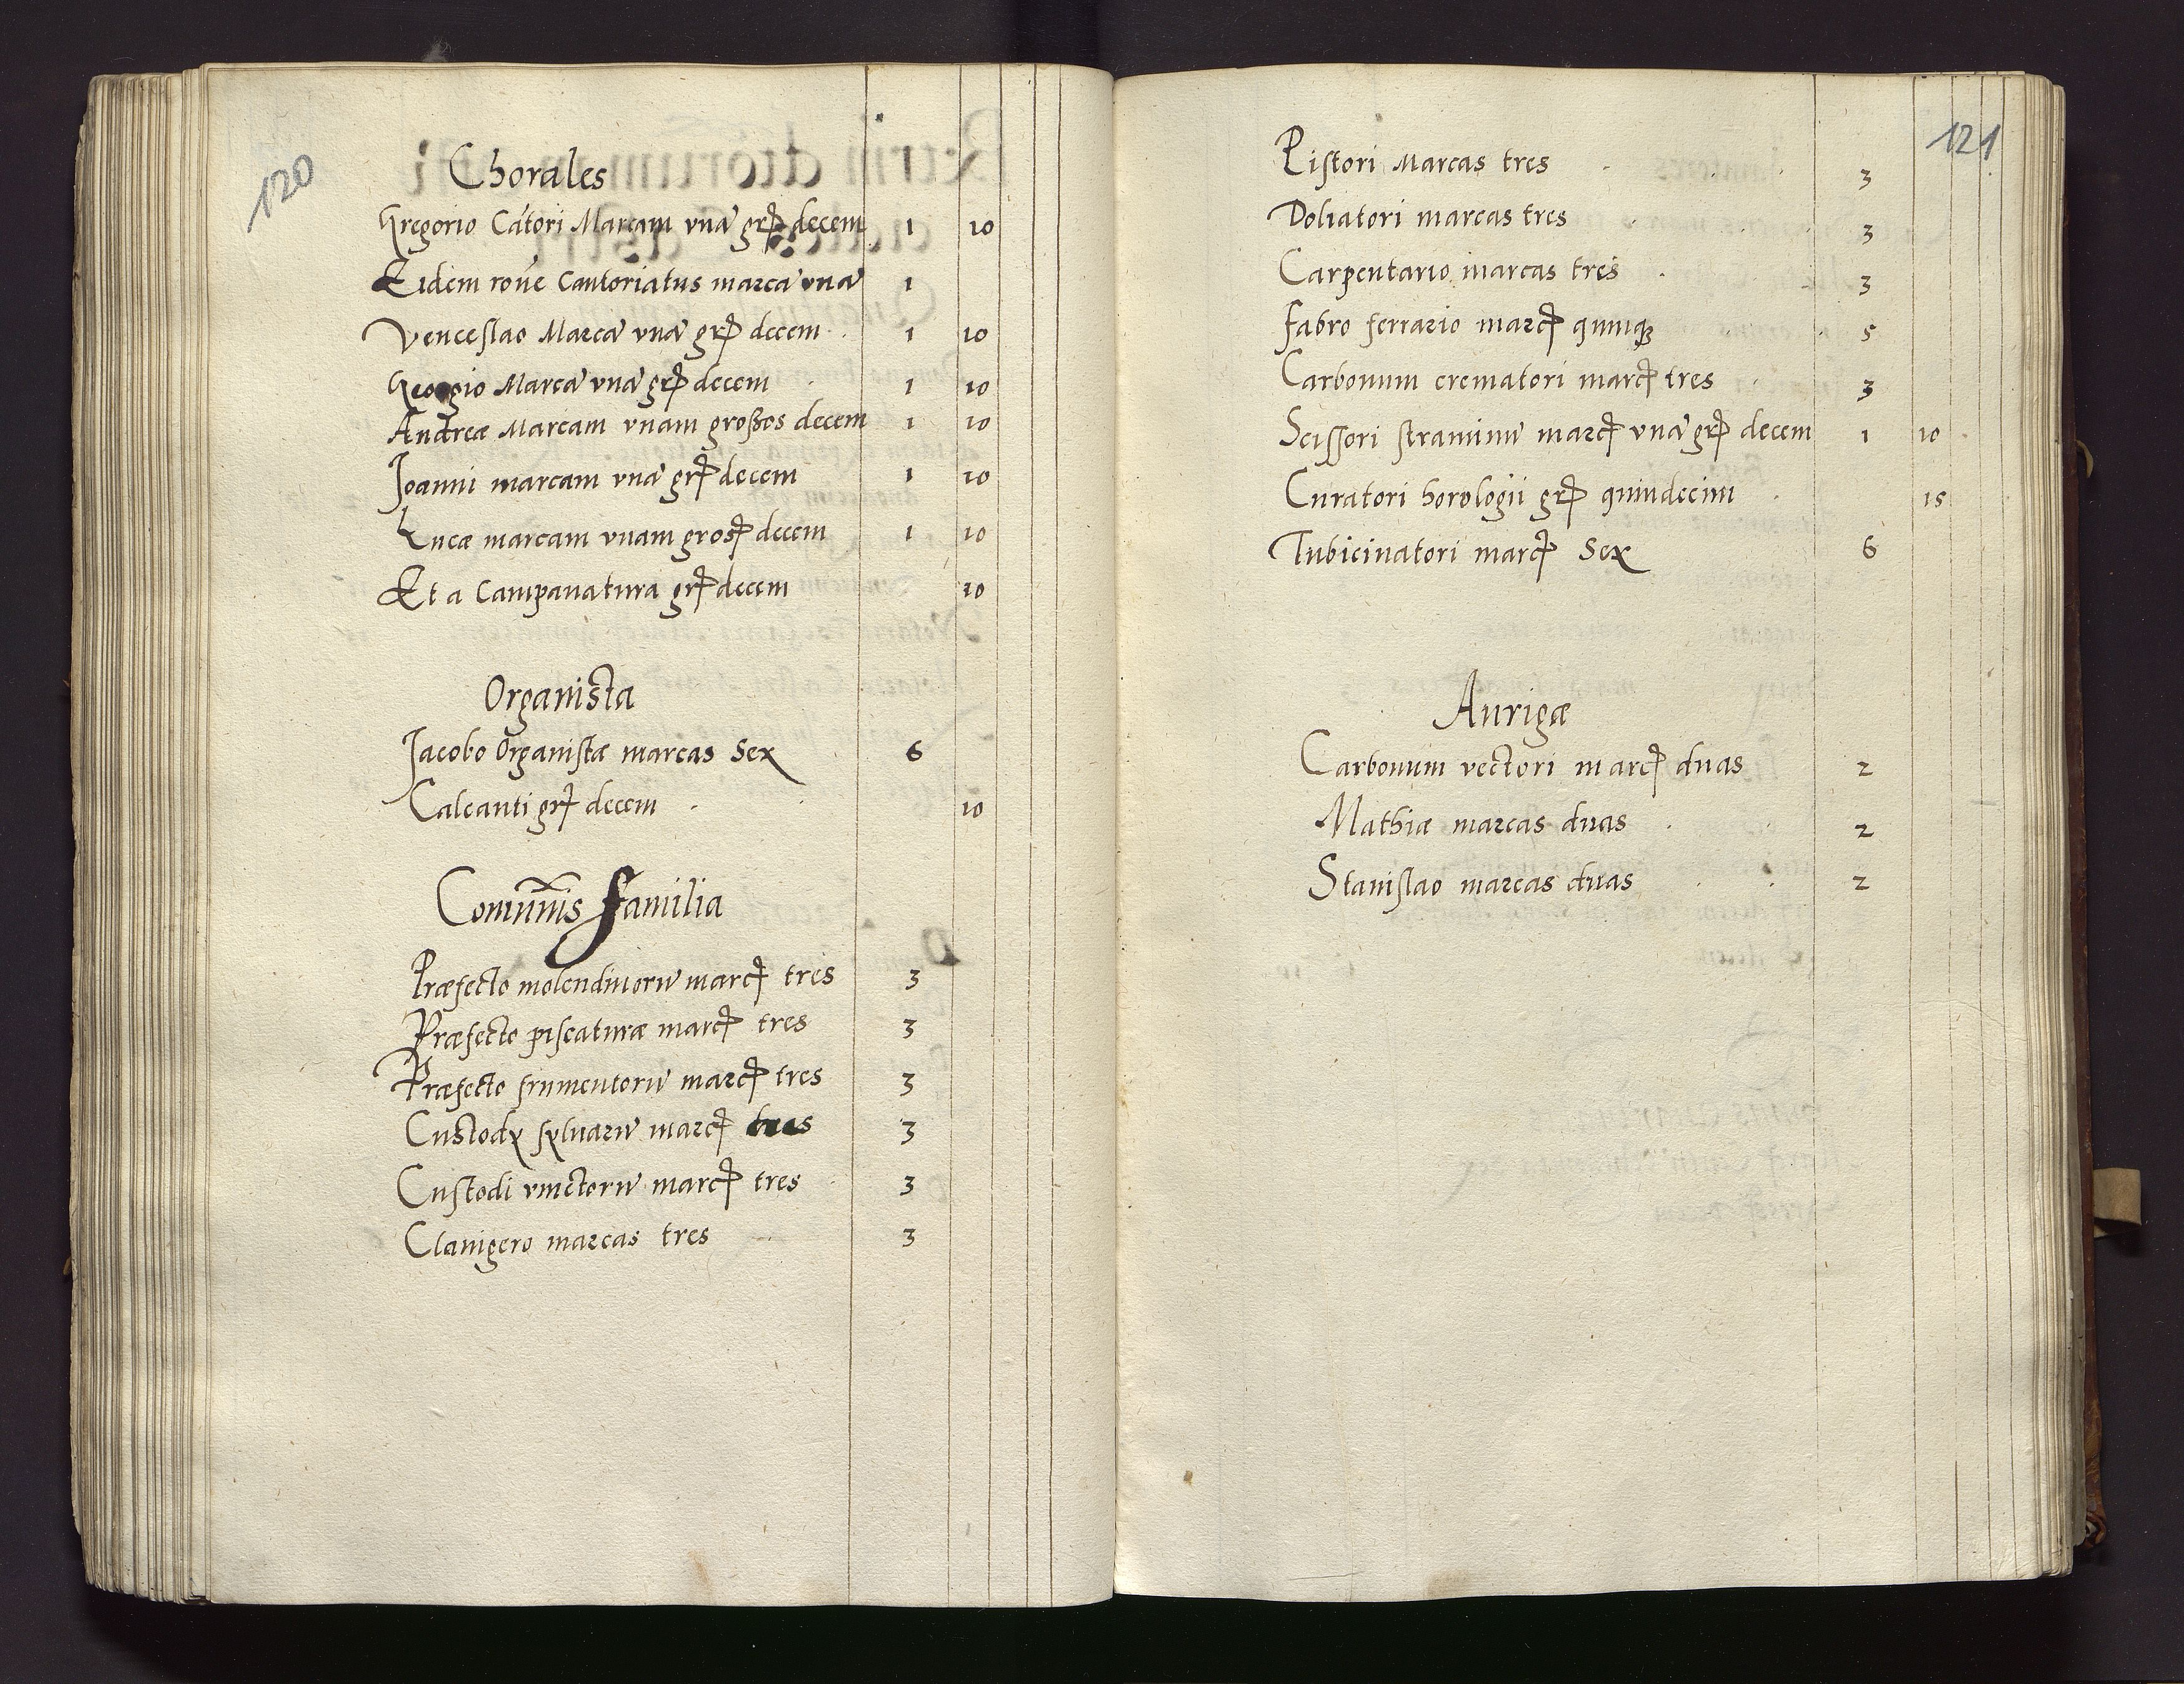 120
Chorales
Gregorio Cãtori Marcam vnã grꝭ decem 1 10
Eidem rōne Cantoriatus marcã vnã 1
Venceslao Marcã vnã grꝭ decem 1 10
Georgio Marcã vnã grꝭ decem 1 10
Andreæ Marcam vnam großos decem 1 10
Joanni marcam vnã grꝭ decem 1 10
Lucæ marcam vnam grosꝭ decem 1 10
Et a Campanatura grꝭ decem 10
Organista
Jacobo Organistæ marcas Sex 6
Calcanti grꝭ decem 10
Comūnis Familia
Præfecto molendinorũ marcꝭ tres 3
Præfecto piscaturæ marcꝭ tres 3
Præfecto frumentorũ marcꝭ tres 3
Custody syluarũ marcꝭ tres 3
Custodi vinctorũ marcꝭ tres 3
Clauigero marcas tres 3
121
Pistori Marcas tres 3
Doliatori marcas tres 3
Carpentario marcas tres 3
Fabro ferrario marcꝭ quinqꝫ 5
Carbonum crematori marcꝭ tres 3
Scissori straminũ marcꝭ vnã grꝭ decem 1 10
Curatori horologii grꝭ quindecim 15
Tubicinatori marcꝭ Sex 6
Aurigæ
Carbonum vectori marcꝭ duas 2
Mathiæ marcas duas 2
Stanislao marcas duas 2